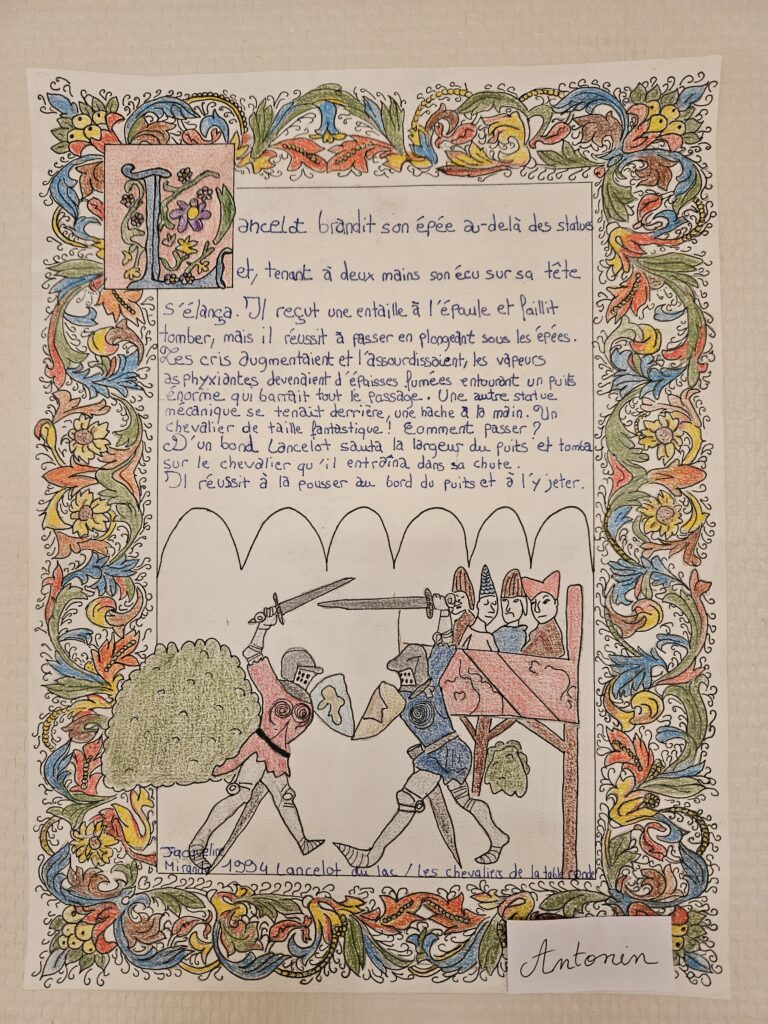 Lancelot brandit son épée au-delà des statues
et, tenant à deux mains son écu sur sa tête
s'élança. Il reçut une entaille à l'épaule et faillit
tomber, mais il réussit à passer en plongeant sous les épées.
Les cris augmentaient et l'assourdissaient, les vapeurs
asphyxiantes devenaient d'épaisses fumées entourant un puits
énorme qui barrait tout le passage. Une autre statue
mécanique se tenait derrière, une hache à la main. Un
chevalier de taille fantastique ! Comment passer ?
D'un bond Lancelot sauta la largeur du puits et tomba
sur le chevalier qu'il entraîna dans sa chute.
Il réussit à la pousser au bord du puits et à l'y jeter.
Jacqueline
Mirande 1994 Lancelot du lac / Les chevaliers de la table ronde
Antonin